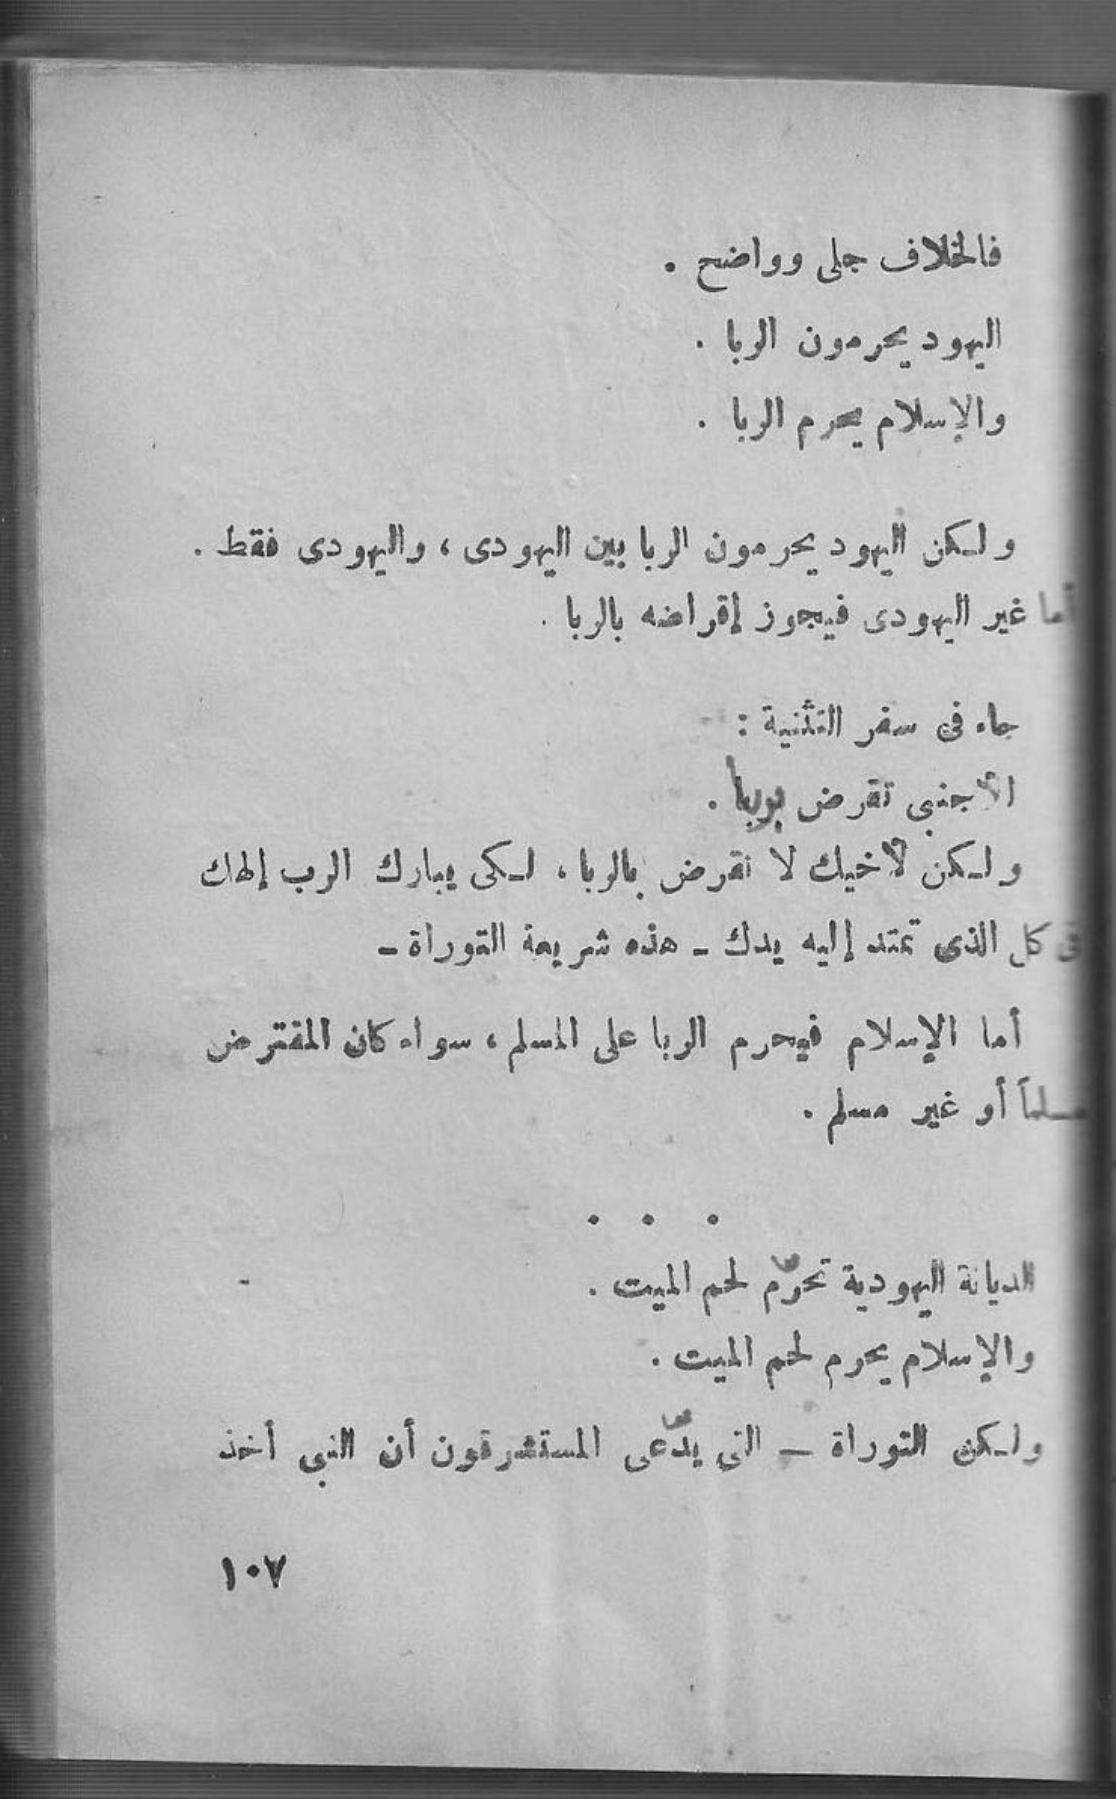 فالخلاف جلى وواضح .
اليهود يحرمون الربا .
والإسلام يحرم الربا .
ولكن اليهود يحرمون الربا بين اليهودى ، واليهودى فقط .
أما غير اليهودى فيجوز إقراضه بالربا .
جاء فى سفر التثنية :
الأجنبى تقرض بربا .
ولكن لأخيك لا تقرض بالربا ، لكى يبارك الرب إلهك
فى كل الذى تمتد إليه يدك - هذه شريعة التوراة -
أما الإسلام فيحرم الربا على المسلم ، سواء كان المقترض
مسلماً أو غير مسلم .
. . .
الديانة اليهودية تحرّم لحم الميت .
والإسلام يحرم لحم الميت .
ولكن التوراة - التى يدّعى المستشرقون أن النبى أخذ
١٠٧